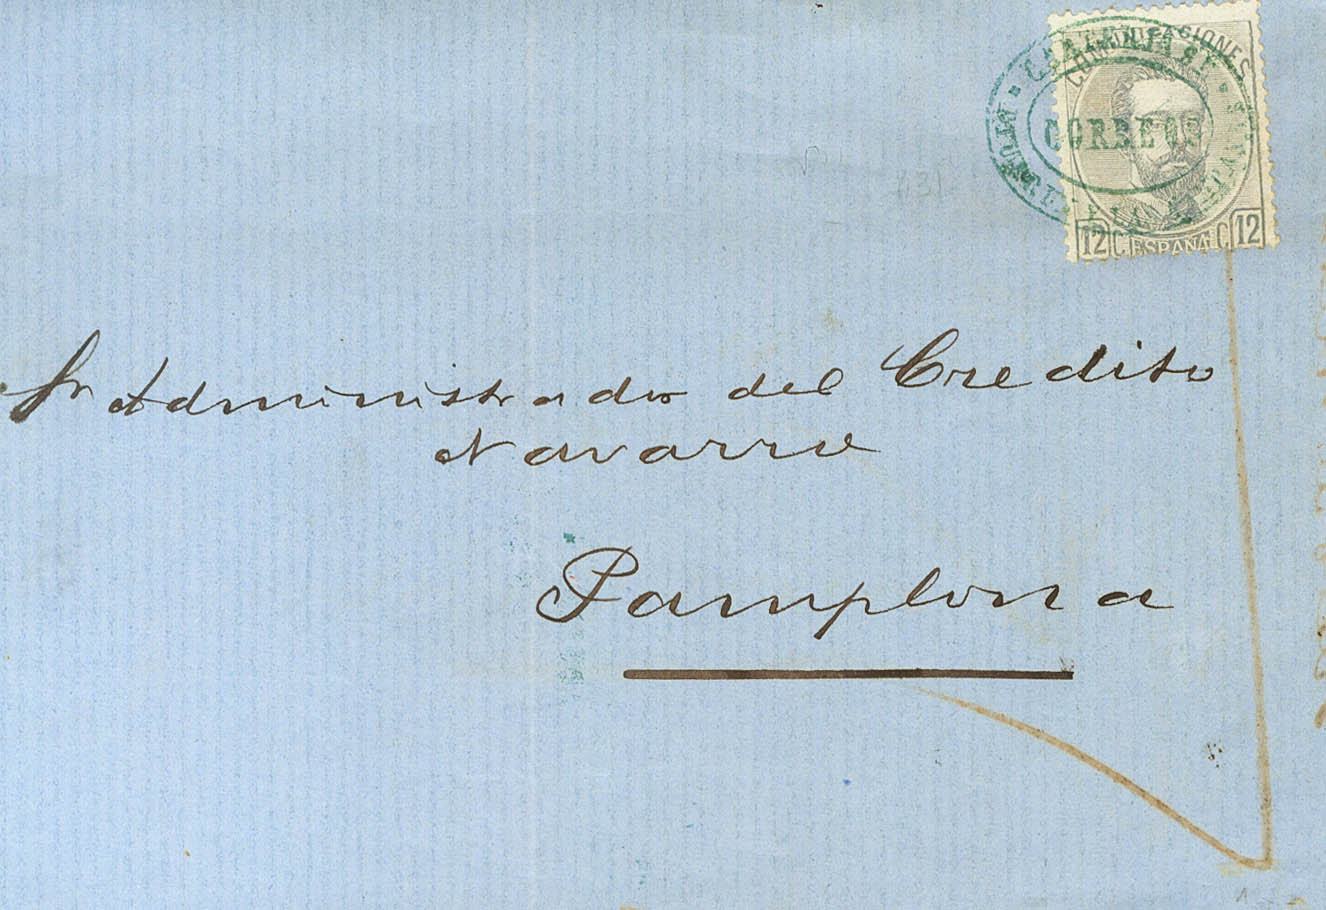 COMUNICACIONES
CORREOS
12 C. ESPAÑA C. 12
Sr Administrador del Credito
Navarro
Pamplona